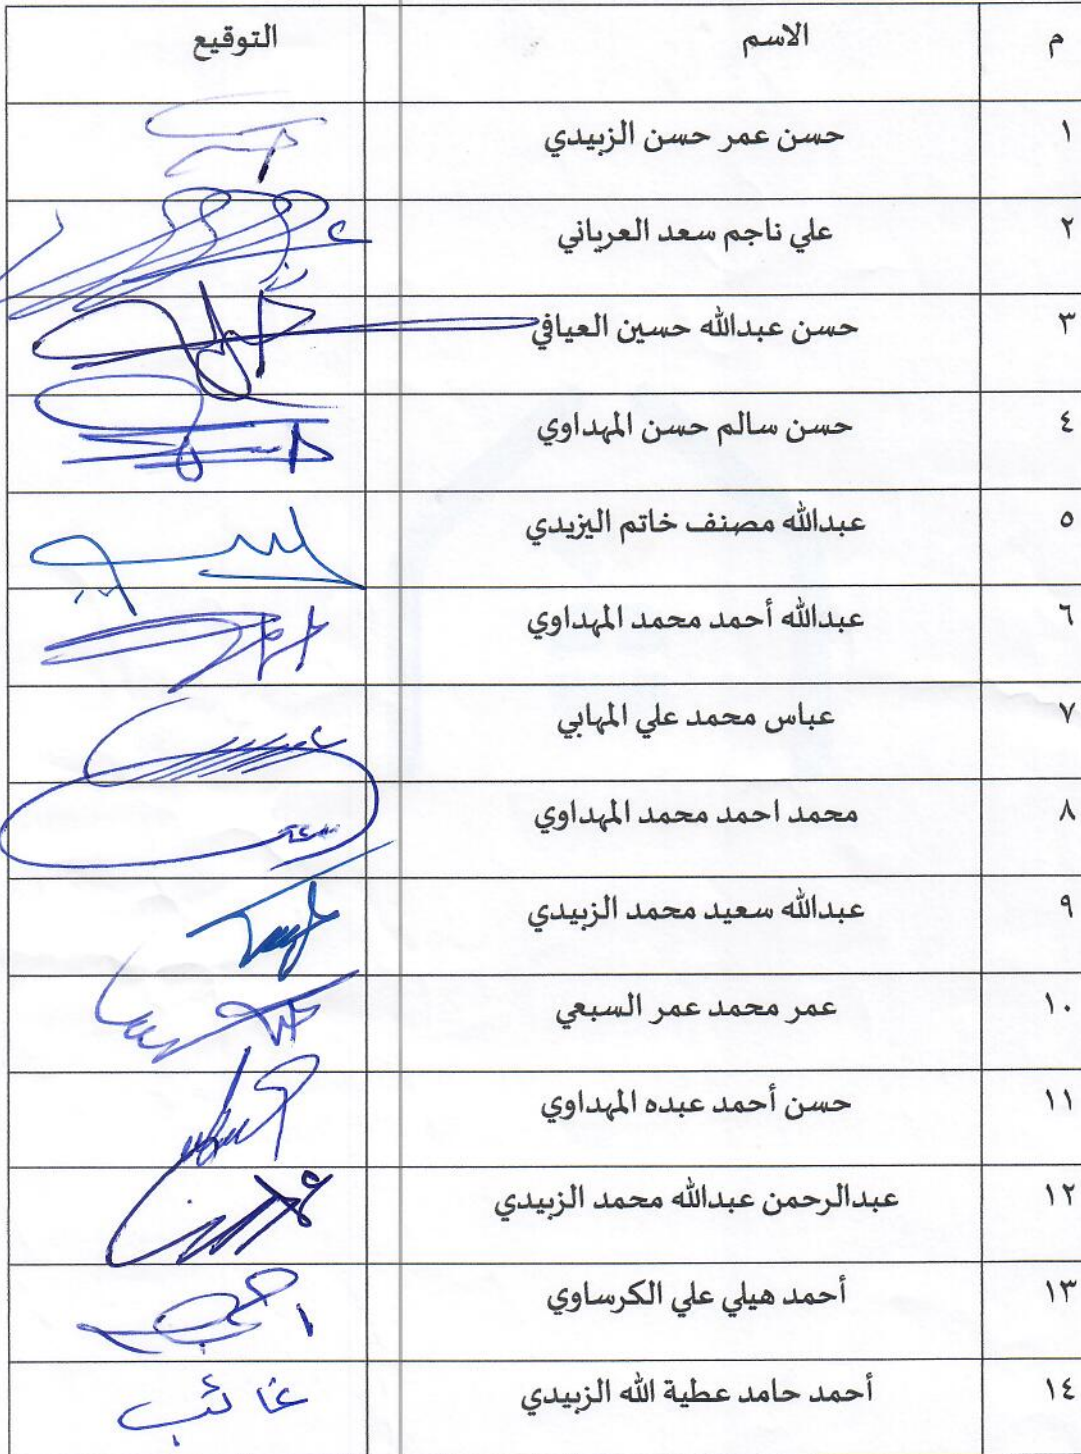 م الاسم التوقيع
١ حسن عمر حسن الزبيدي
٢ علي ناجم سعد العرياني
٣ حسن عبدالله حسين العيافي
٤ حسن سالم حسن المهداوي
٥ عبدالله مصنف خاتم اليزيدي
٦ عبدالله أحمد محمد المهداوي
٧ عباس محمد علي المهابي
٨ محمد احمد محمد المهداوي
٩ عبدالله سعيد محمد الزبيدي
١٠ عمر محمد عمر السبعي
١١ حسن أحمد عبده المهداوي
١٢ عبدالرحمن عبدالله محمد الزبيدي
١٣ أحمد هيلي علي الكرساوي
١٤ أحمد حامد عطية الله الزبيدي غائب